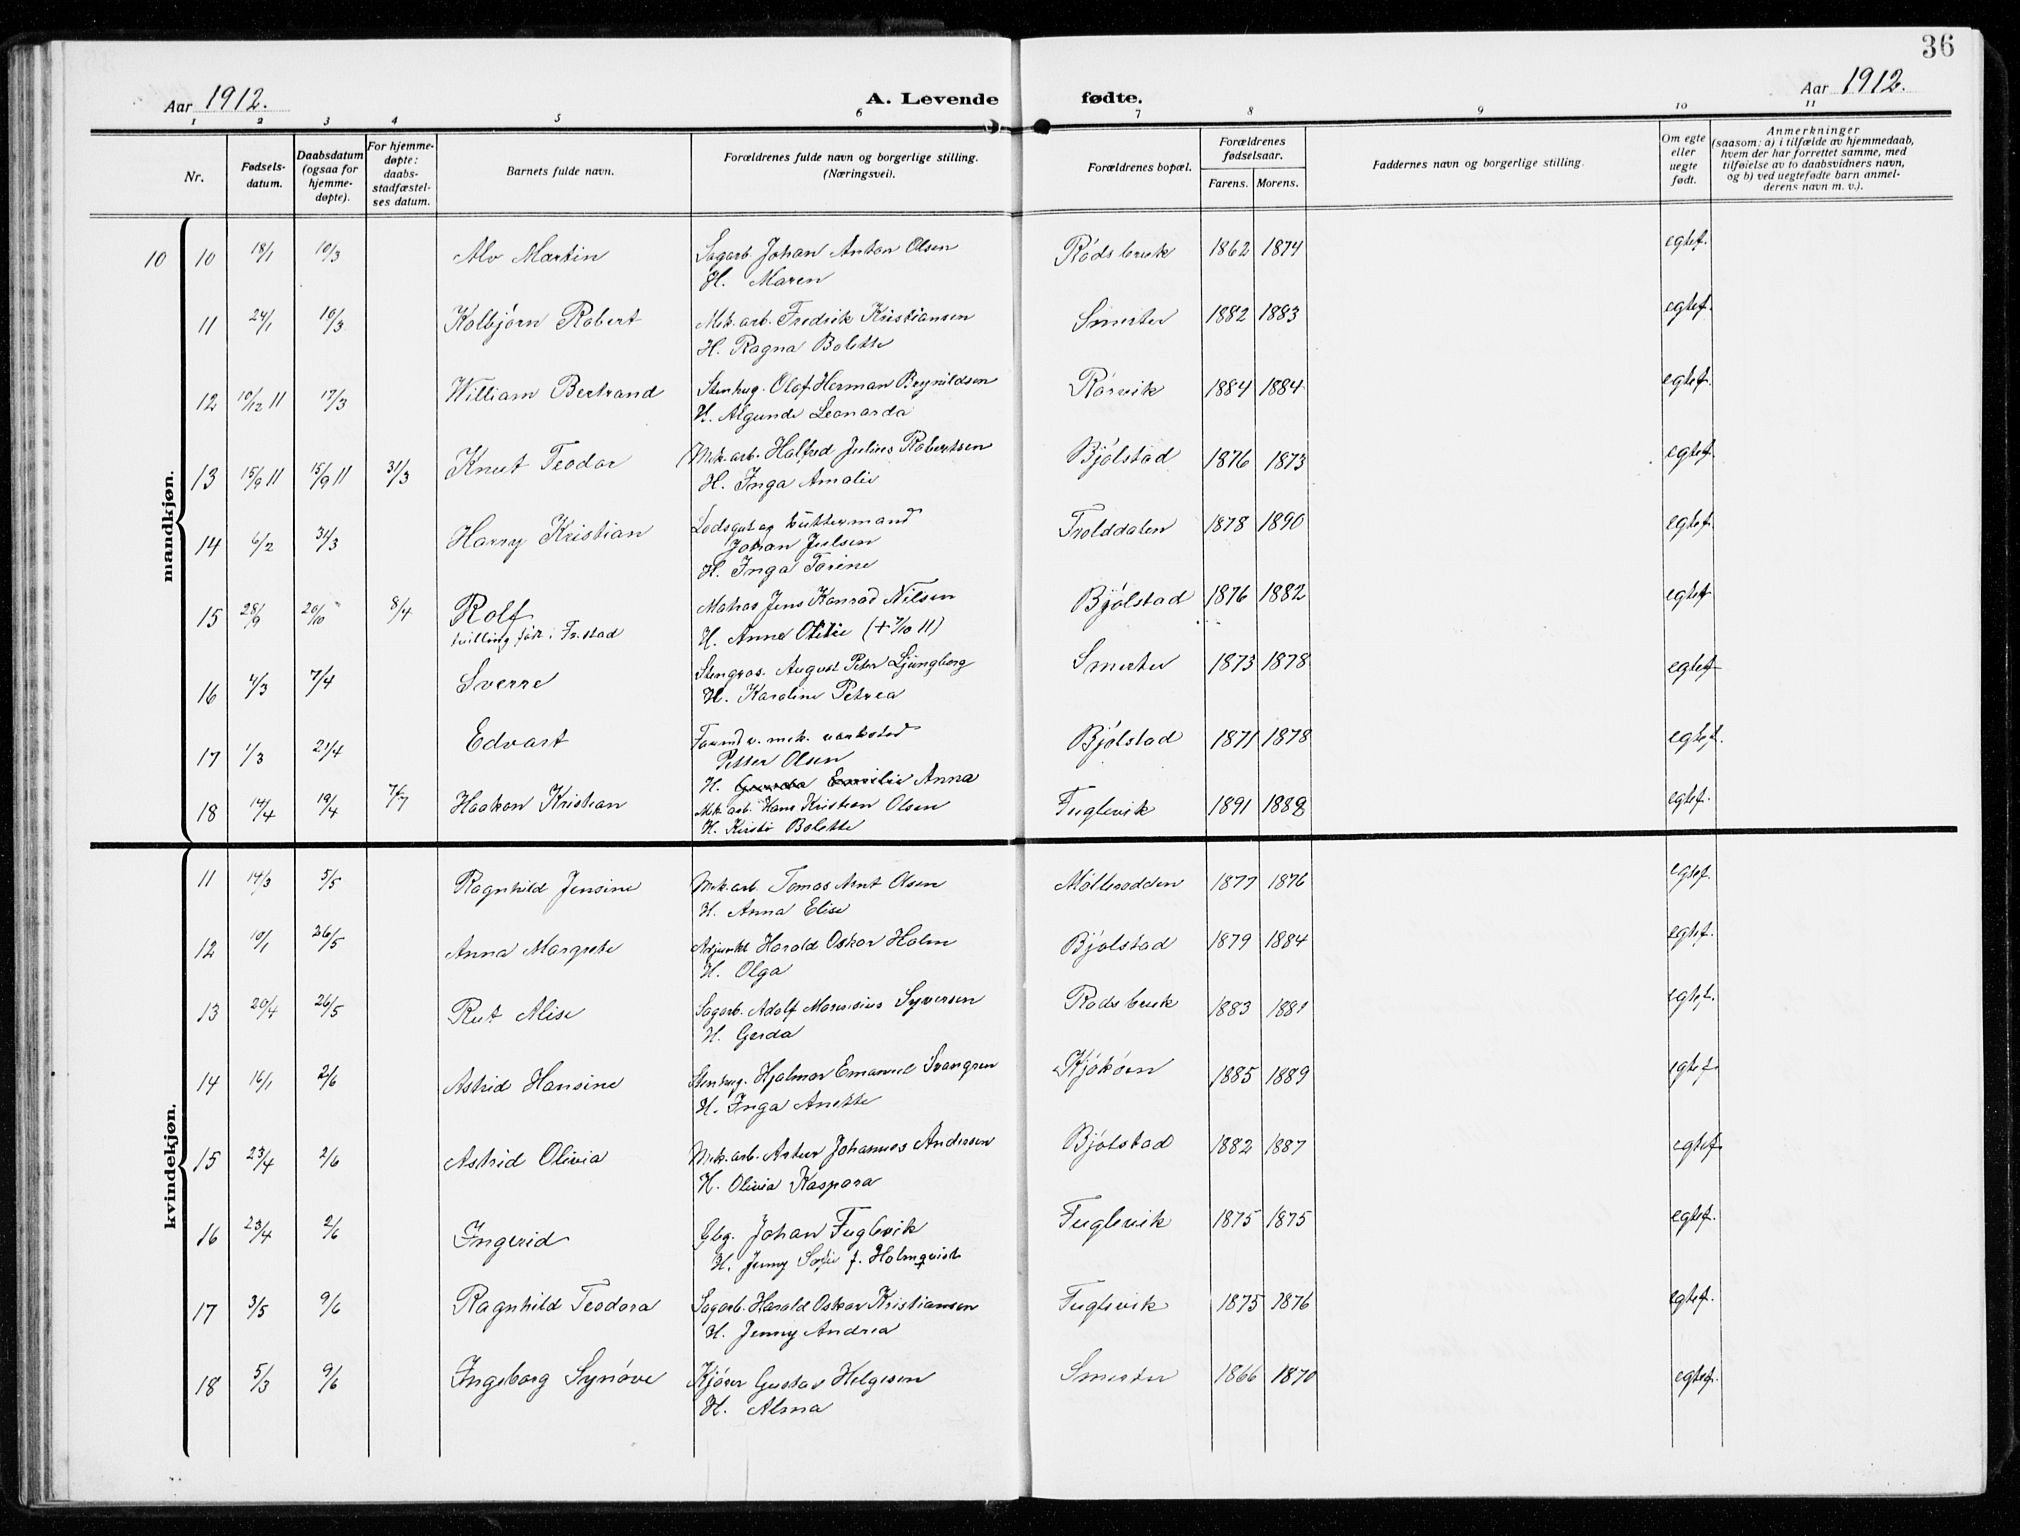 36
Aar 1912.
A. Levende fødte.
Aar 1912.
1 2 3 4 5 6 7 8 9 10 11
Nr.
Fødsels-
datum.
Daabsdatum
(ogsaa for
hjemme-
døpte).
For hjemme-
døpte:
daabs-
stadfæstel-
ses datum.
Barnets fulde navn.
Forældrenes fulde navn og borgerlige stilling.
(Næringsvei).
Forældrenes bopæl.
Forældrenes
fødselsaar.
Farens. Morens.
Faddernes navn og borgerlige stilling.
Om egte
eller
uegte
født.
Anmerkninger
(saasom: a) i tilfælde av hjemmedaab,
hvem der har forrettet samme, med
tilføielse av to daabsvidners navn,
og b) ved uegtefødte barn anmel-
derens navn m. v.).
mandkjøn.
10 10 18/1 10/3 Alv Martin Sagarb. Johan Anton Olsen Rødsbruk 1862 1874 egtef.
H. Maren
11 24/1 10/3 Kolbjørn Robert Mek.arb. Fredrik Kristiansen Smerter 1882 1883 egtef.
H. Ragna Bolette
12 10/12 11 17/3 William Bertrand Stenhug. Olaf Herman Brynildsen Rørvik 1884 1884 egtef.
H. Algunde Leonarda
13 15/9 11 15/9 11 31/3 Knut Teodor Mek.arb. Halfred Julius Robertsen Bjølstad 1876 1873 egtef.
H. Inga Amalie
14 6/2 31/3 Harry Kristian Lodsgut og kuttermand Trolddalen 1878 1890 egtef.
Johan Julsen
H. Inga Torine
15 28/9 20/10 8/4 Rolf Matros Jens Konrad Nilsen Bjølstad 1876 1882 egtef
tvilling født i Fr.stad H. Anne Otilie (+ 7/10 11)
16 4/3 7/4 Sverre August Peter Ljungberg Smerter 1873 1878 egtef
H. Karoline Petrea
17 1/3 21/4 Edvart Formd v. mek. verksted Bjølstad 1871 1878 egtef.
Petter Olsen
H. Emilie Anna
18 14/4 19/4 7/7 Haakon Kristian Mek.arb. Hans Kristian Olsen Fuglevik 1891 1888 egtef.
H. Kirsti Bolette
kvindekjøn.
11 14/3 5/5 Ragnhild Jensine Mek.arb. Tomas Arnt Olsen Møllerodden 1877 1876 egtef.
H. Anna Elise
12 10/1 26/5 Anna Margrete Adjunkt Harald Oskar Holm Bjølstad 1879 1884 egtef.
H. Olga
13 20/4 26/5 Rut Alise Sagarb. Adolf Marensius Syversen Rødsbruk 1883 1881 egtef.
H. Gerda
14 16/1 2/6 Astrid Hansine Stenhug. Hjalmar Emanuel Svangren Kjøkøen 1885 1889 egtef.
H. Inga Anette
15 23/4 2/6 Astrid Olivia Mek.arb. Artur Johannes Andersen Bjølstad 1882 1887 egtef
H. Olivia Kaspara
16 23/4 2/6 Ingerid Gbg. Johan Fuglevik Fuglevik 1875 1875 egtef.
H. Jenny Sofie f. Holmqvist
17 3/5 9/6 Ragnhild Teodora Sagarb. Harald Oskar Kristiansen Fuglevik 1875 1876 egtef.
H. Jenny Andrea
18 5/3 9/6 Ingeborg Synøve Kjører Gustav Helgesen Smerter 1866 1870 egtef.
H. Alma